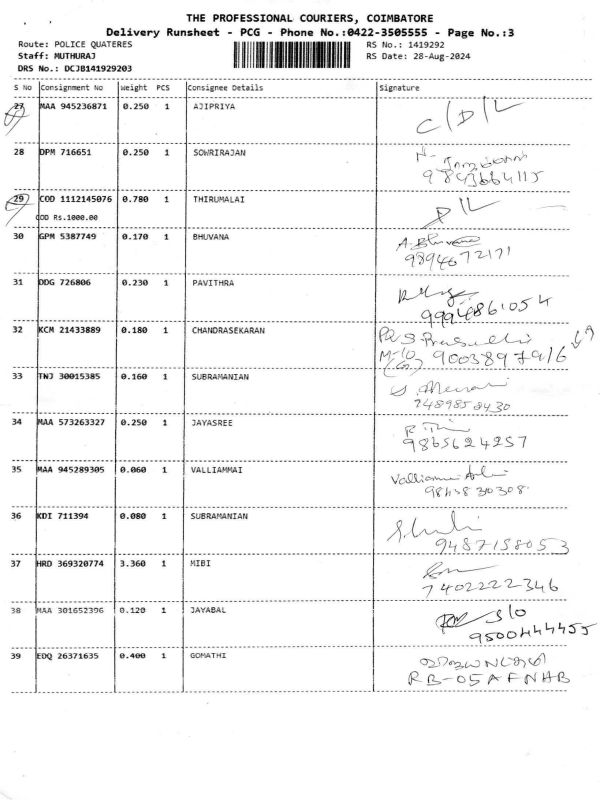 THE PROFESSIONAL COURIERS, COIMBATORE
Delivery Runsheet - PCG - Phone No.:0422-3505555 - Page No.:3
Route: POLICE QUATERES RS No.: 1419292
Staff: MUTHURAJ RS Date: 28-Aug-2024
DRS No.: DCJB141929203
S No Consignment No Weight PCS Consignee Details Signature
27 MAA 945236871 0.250 1 AJIPRIYA C/D/L
28 DPM 716651 0.250 1 SOWRIRAJAN N-
9843664115
29 COD 1112145076 0.780 1 THIRUMALAI D/L
COD Rs.1000.00
30 GPM 5387749 0.170 1 BHUVANA A. Bhuvana
9894672171
31 DDG 726806 0.230 1 PAVITHRA
9994861054
32 KCM 21433889 0.180 1 CHANDRASEKARAN
9003897916
33 TNJ 30015385 0.160 1 SUBRAMANIAN
9489858430
34 MAA 573263327 0.250 1 JAYASREE
9865624257
35 MAA 945289305 0.060 1 VALLIAMMAI Valliammai
9845830308
36 KDI 711394 0.080 1 SUBRAMANIAN
9487158053
37 HRD 369320774 3.360 1 MIBI
7402222346
38 MAA 301652396 0.120 1 JAYABAL S/o
9500444455
39 EDQ 26371635 0.400 1 GOMATHI
RB-05AFNHB